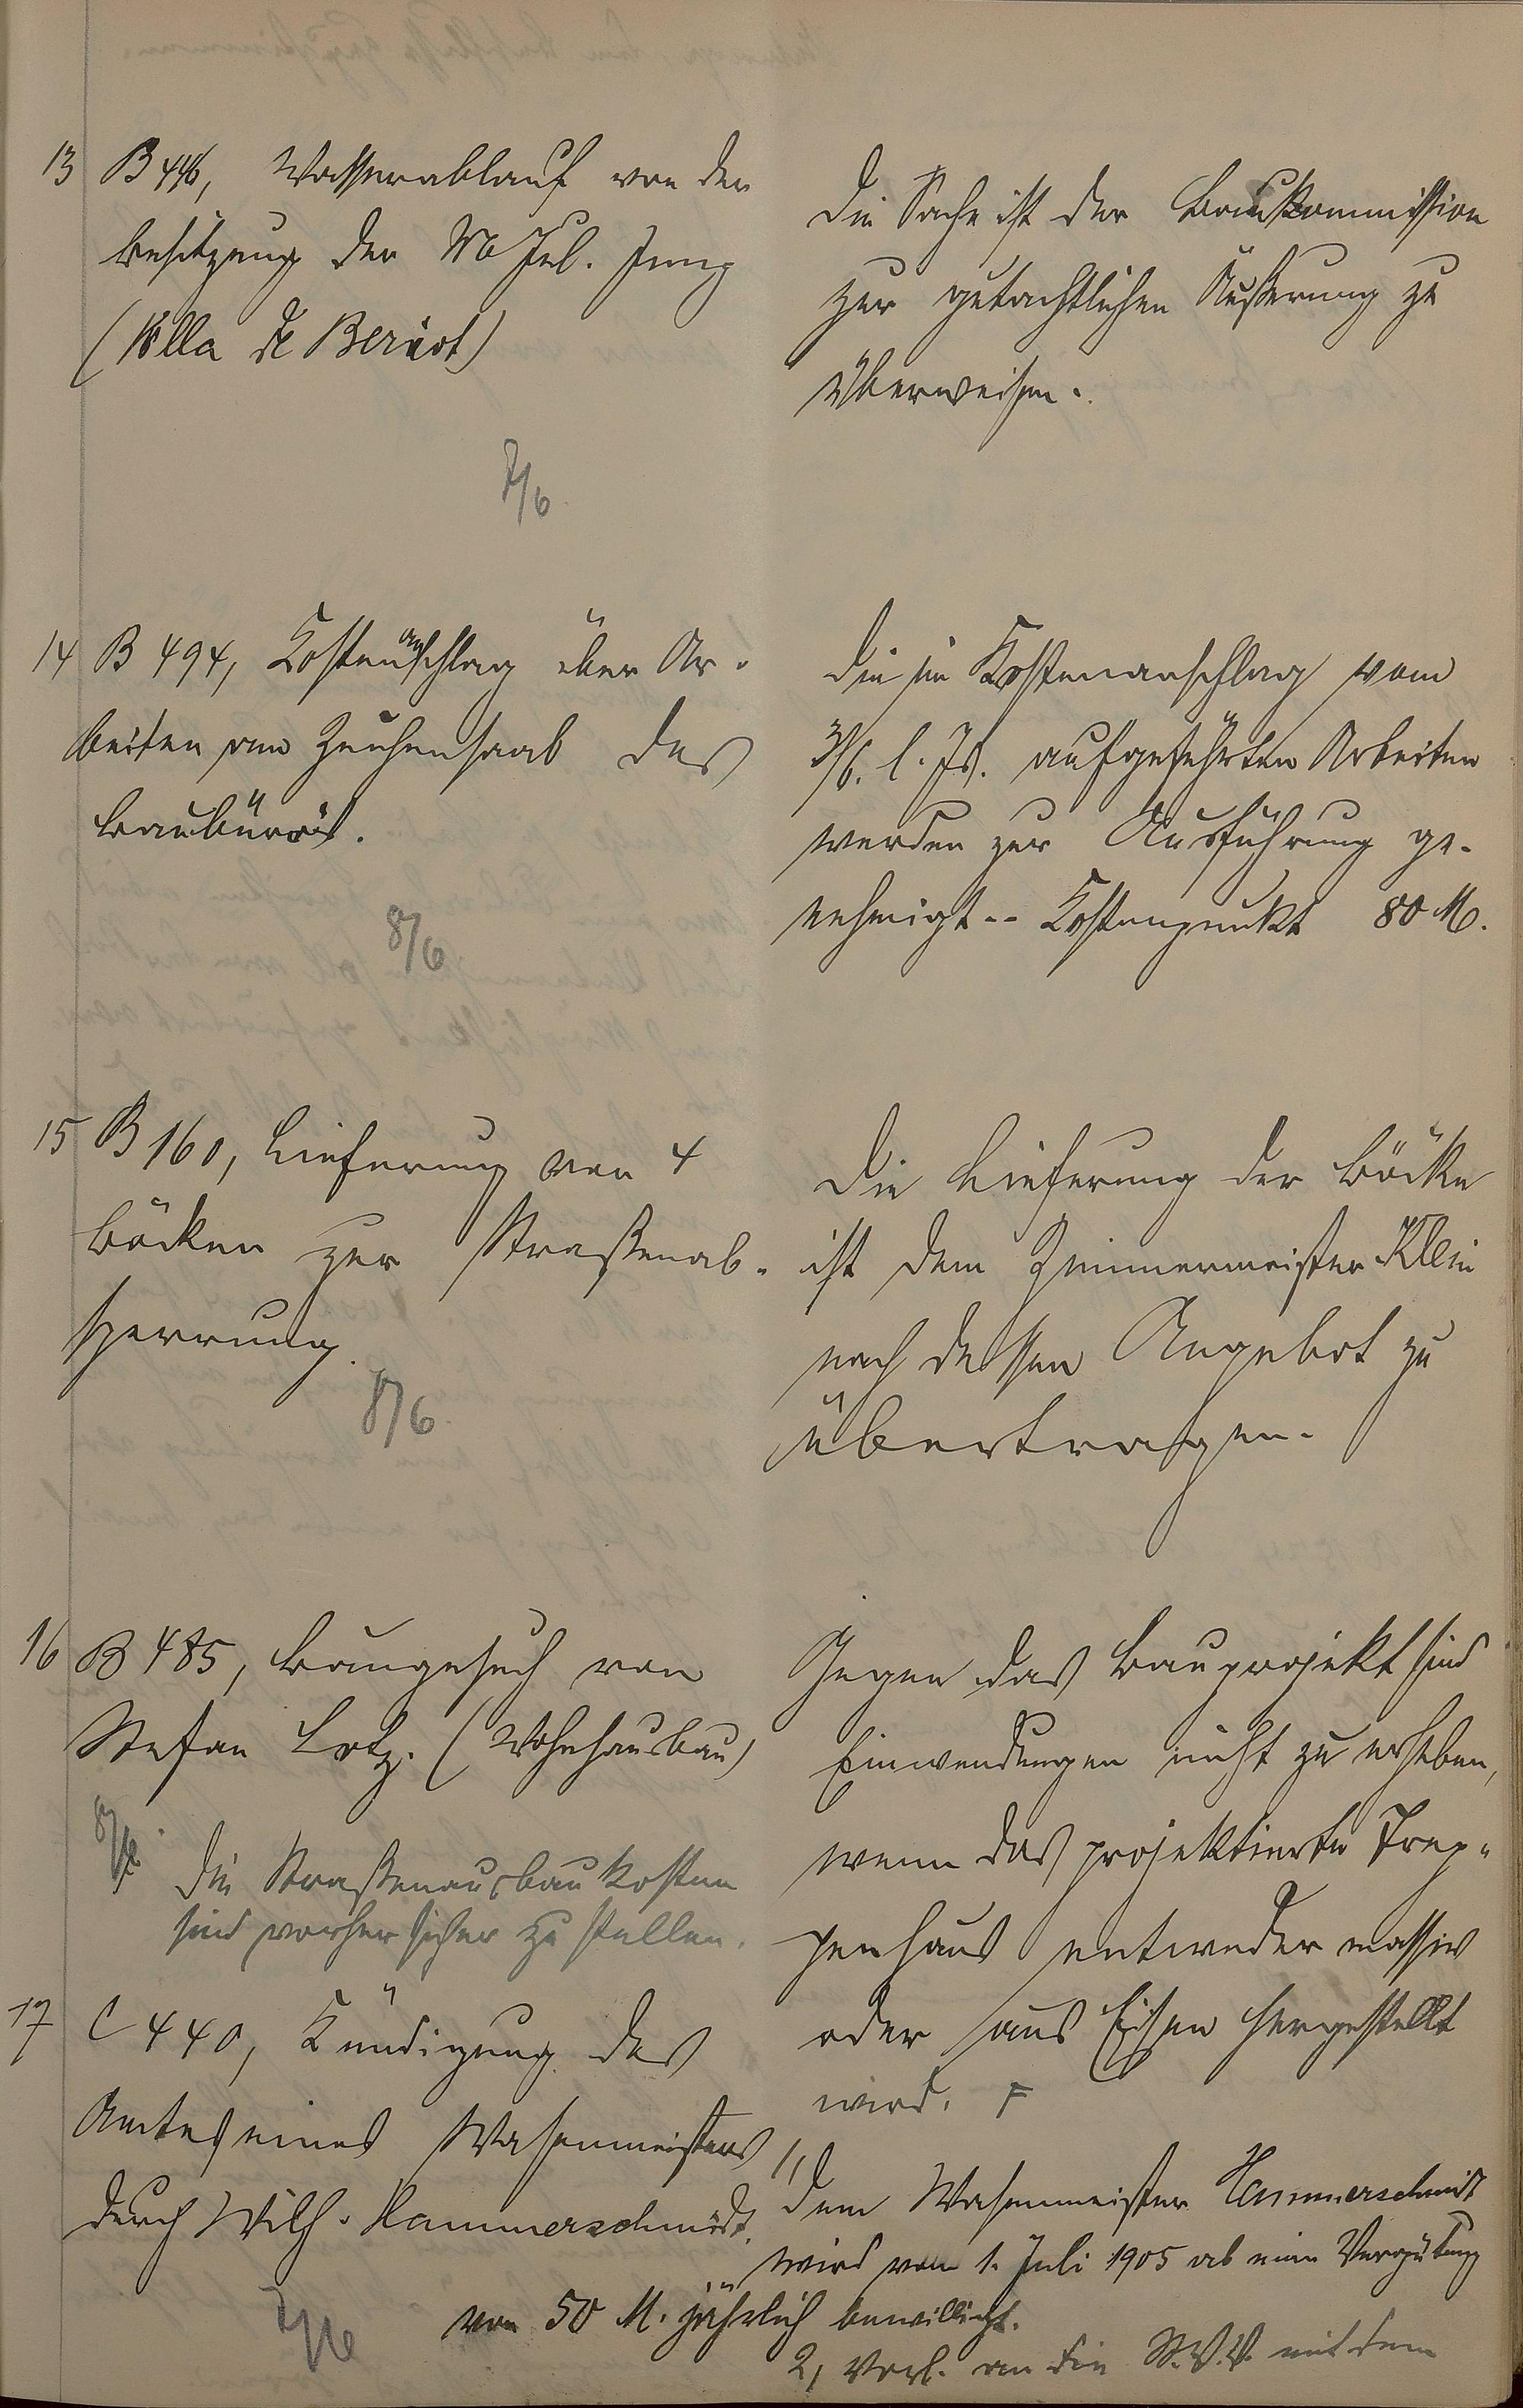 13 B 446, Wasserablauf von der
Besitzung der Jul. Jung
(Villa de Beriot)
7/6
Die Sache ist der Baukommission
zur gutachtlichen Äußerung zu
überweisen.
14 B 494, Kostenanschlag über Ar-
beiten am Zeichensaal des
Baubüros.
8/6
Die im Kostenanschlag vom
3/6. l. Js. aufgeführten Arbeiten
werden zur Ausführung ge-
nehmigt -- Kostenpunkt 80 M.
15 B 160, Lieferung von 4
Böcken zur Straßenab-
sperrung.
8/6
Die Lieferung der Böcke
ist dem Zimmermeister Klein
nach dessen Angebot zu
übertragen.
16 B 485, Baugesuch von
Stefan Lotz. (Wohnhausbau)
8/6
Die Straßenausbaukosten
sind vorher sicher zu stellen.
Gegen das Bauprojekt sind
Einwendungen nicht zu erheben,
wenn das projektierte Trep-
penhaus entweder massiv
oder aus Eisen hergestellt
wird.
17 C 440, Kündigung des
Amtes eines Wasenmeisters
durch Wilh. Hammerschmidt.
7/6
1, Dem Wasenmeister Hammerschmidt
wird vom 1. Juli 1905 ab eine Vergütung
von 50 M. jährlich bewilligt.
2, Vorl. an die St.V.V. mit dem